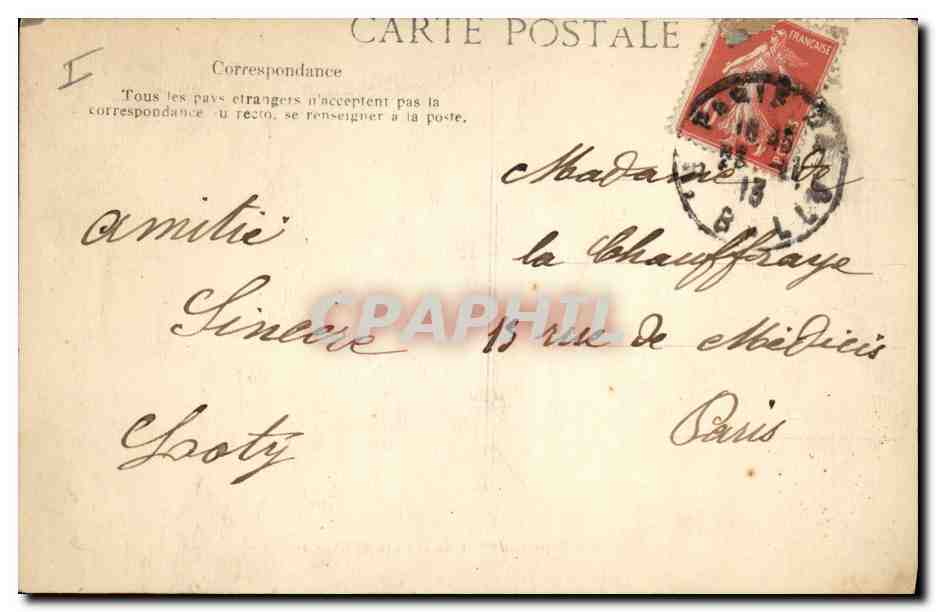 CARTE POSTALE
I
Correspondance
Tous les pays etrangers n'acceptent pas la
correspondance au recto, se renseigner a la poste.
FRANÇAISE
13
amitié
Sincère
Madame de
la Chauffraye
13 rue de Médicis
Paris
CPAPHIL